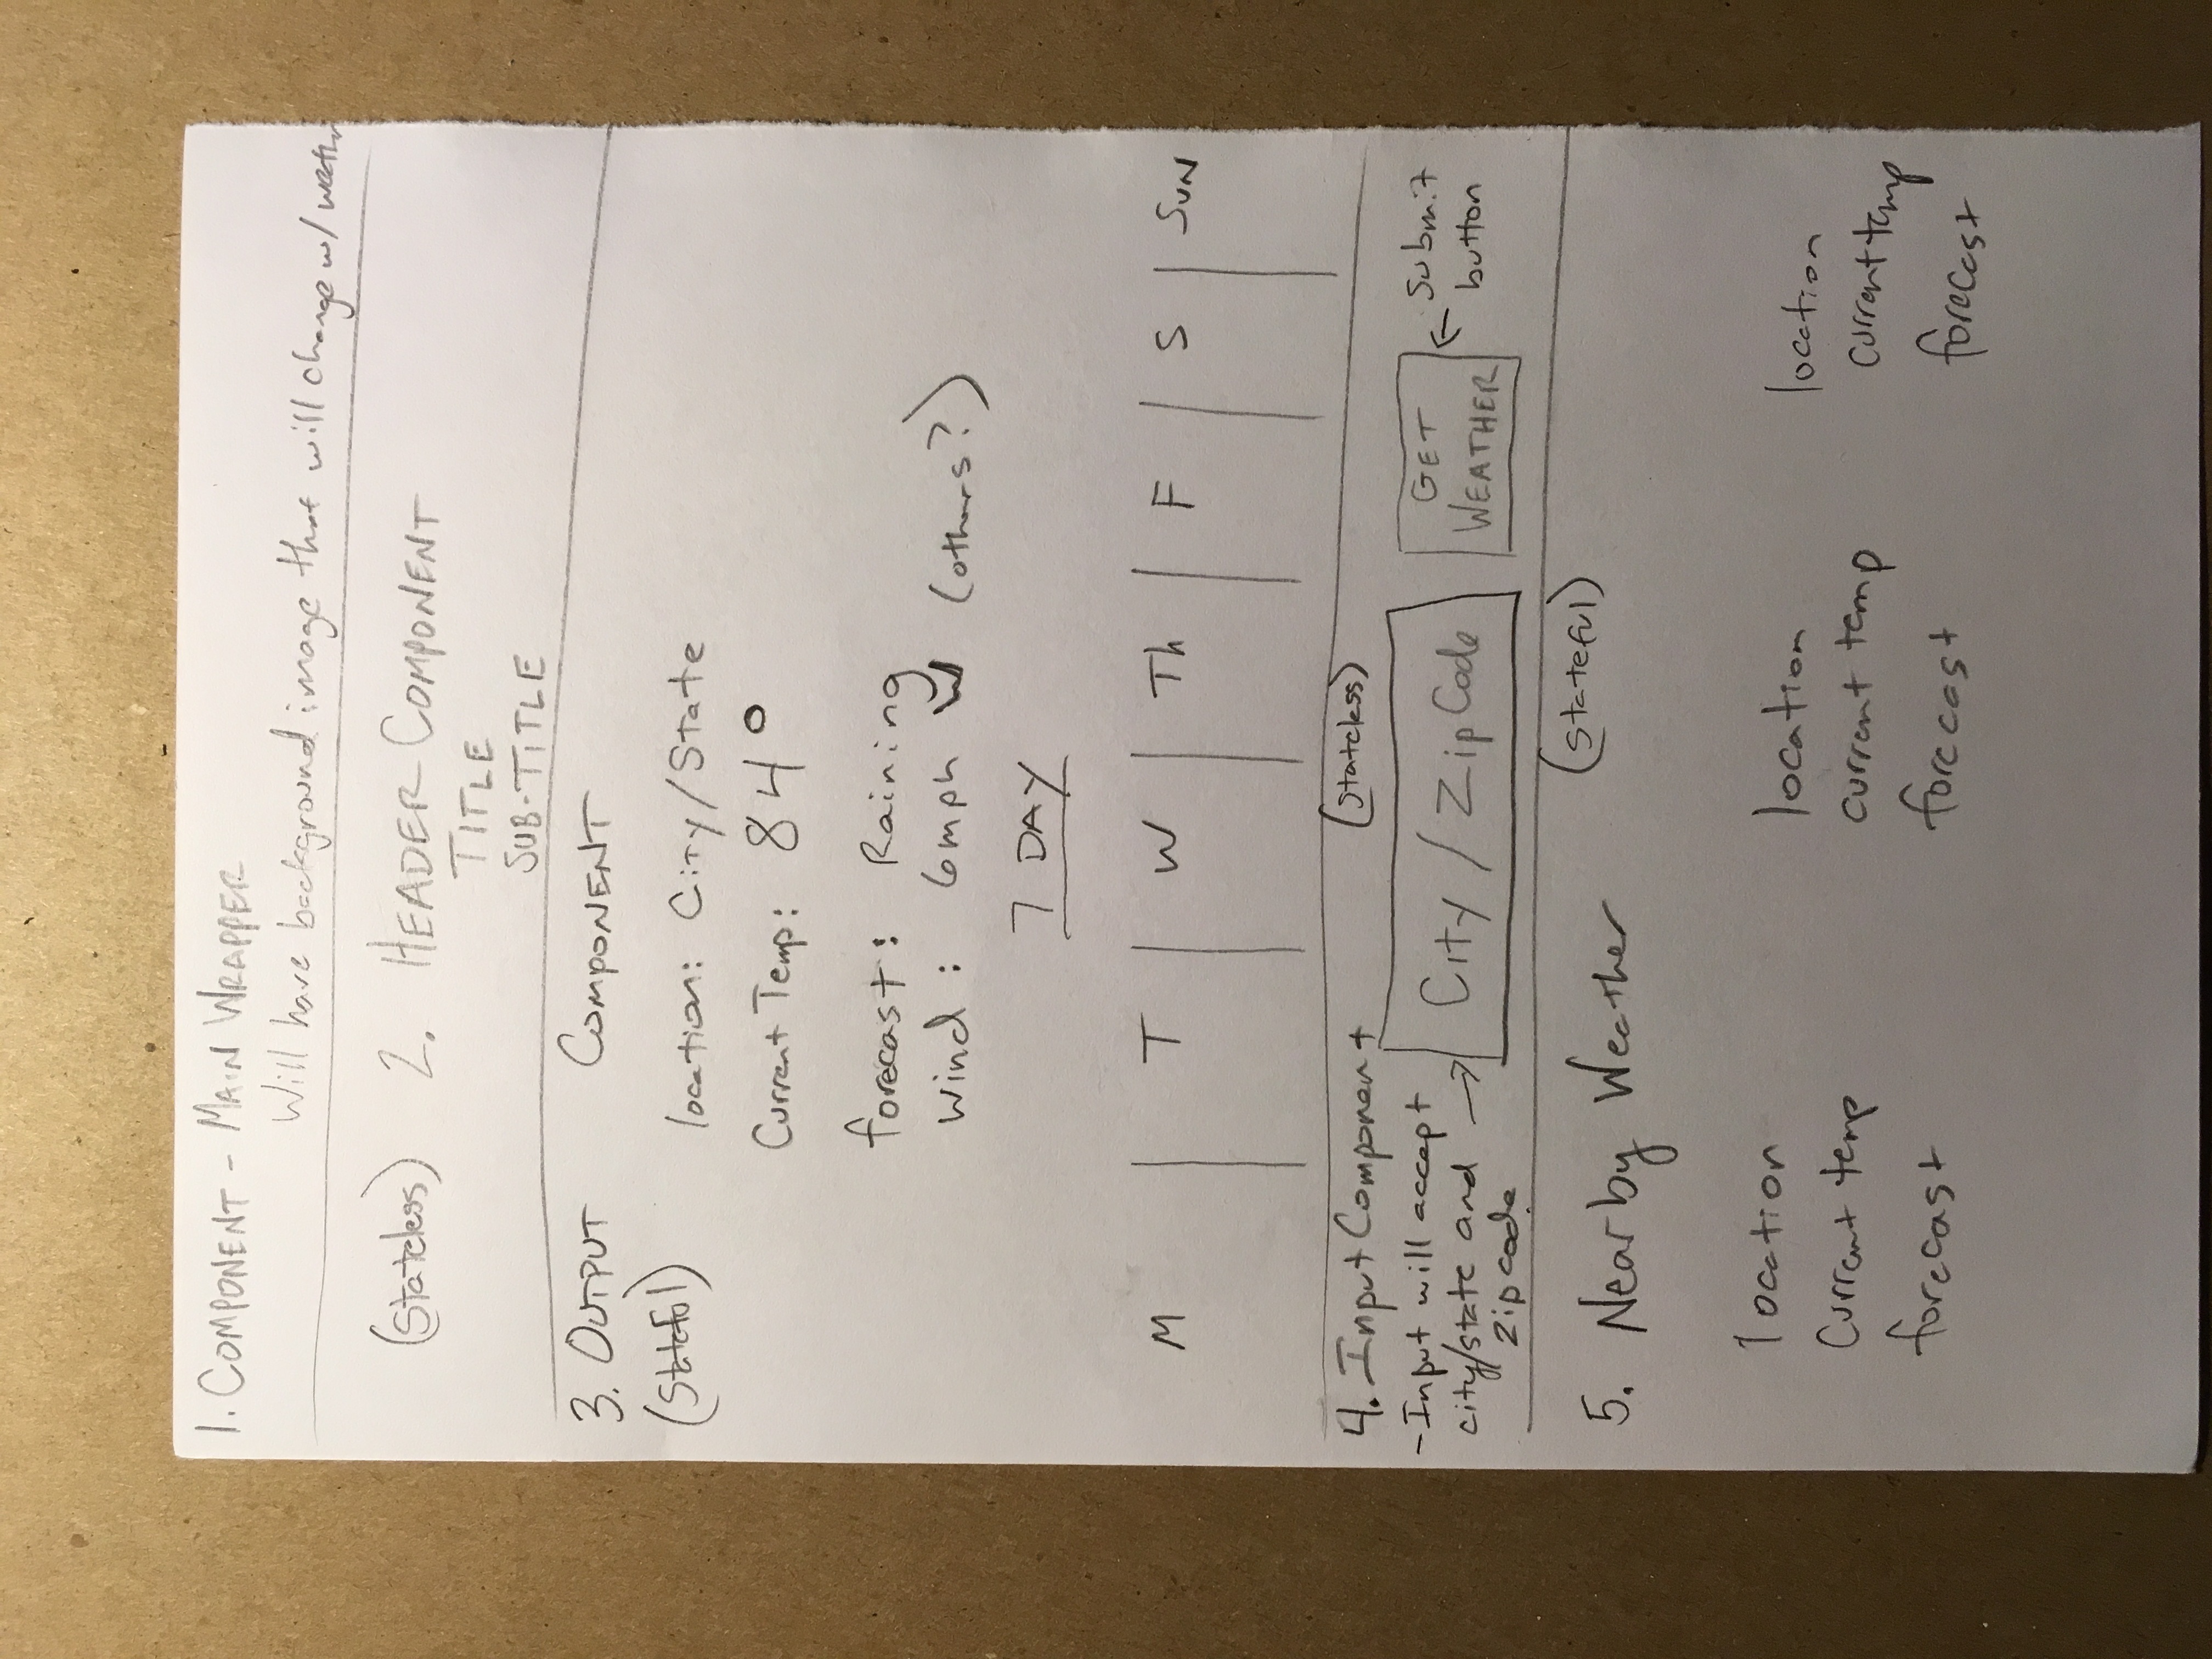 1. COMPONENT - MAIN WRAPPER
Will have background image that will change w/ weather
(Stateless) 2. HEADER COMPONENT
TITLE
SUB-TITLE
3. OUTPUT COMPONENT
(Stateful)
location: City/State
Current Temp: 84°
forecast: Raining
wind: 6mph W (others?)
7 DAY
M T W Th F S SUN
4. Input Component (stateless)
- Input will accept
city/state and
zip code
→ City / Zip Code
GET
WEATHER
← Submit
button
5. Nearby Weather (stateful)
location location location
Current temp current temp current temp
forecast forecast forecast